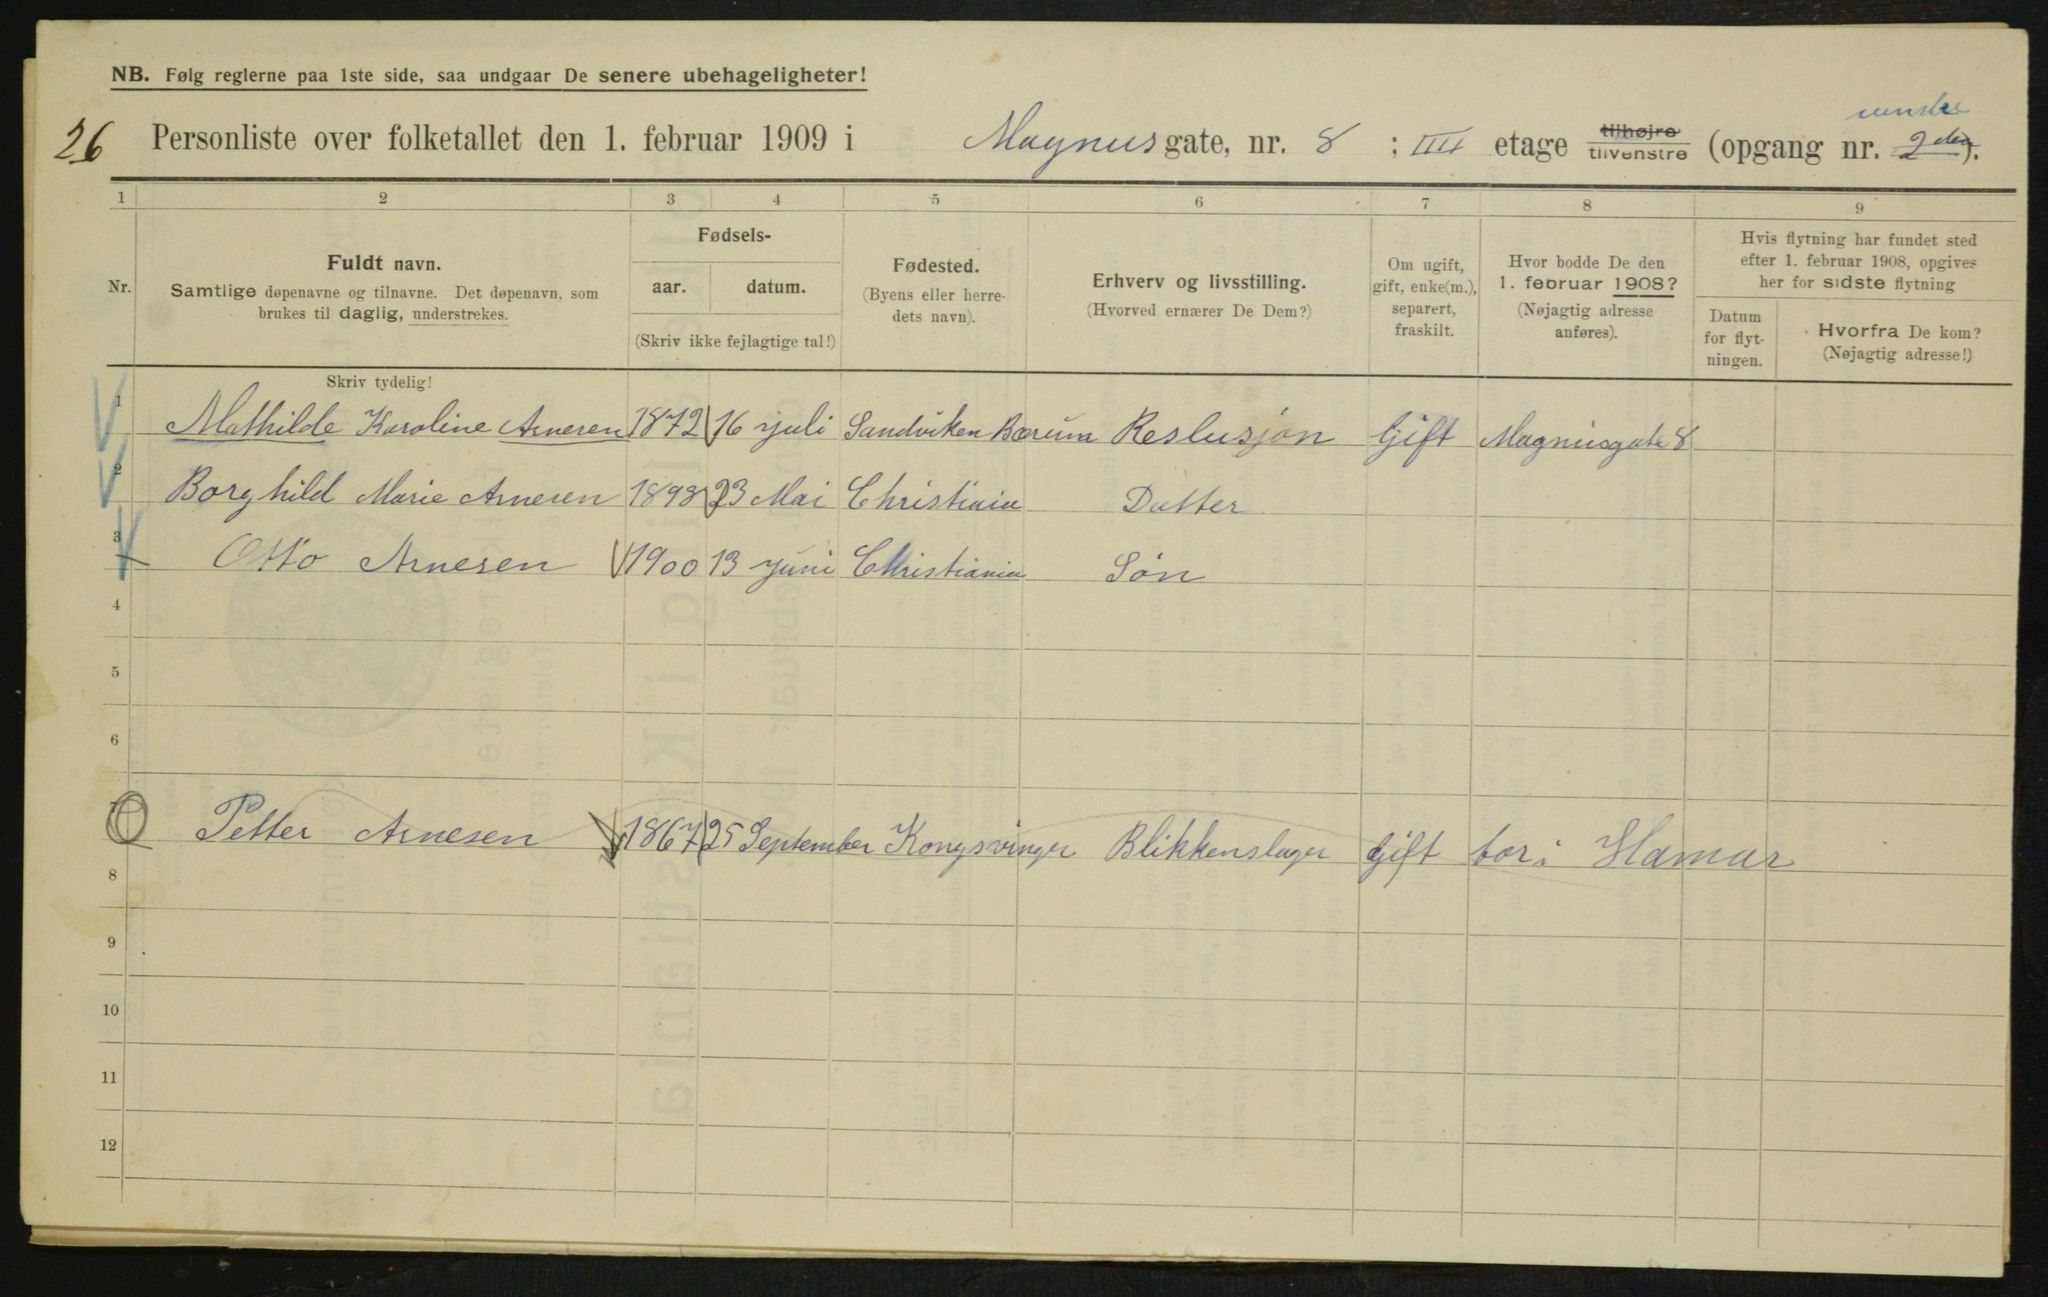 NB. Følg reglerne paa 1ste side, saa undgaar De senere ubehageligheter!
26 Personliste over folketallet den 1. februar 1909 i Magnusgate, nr. 8 ; III etage tilhøjre tilvenstre (opgang nr. 2den).
1 2 3 4 5 6 7 8 9
Nr.
Fuldt navn.
Samtlige døpenavne og tilnavne. Det døpenavn, som
brukes til daglig, understrekes.
Fødsels-
aar. datum.
(Skriv ikke fejlagtige tal!)
Fødested.
(Byens eller herre-
dets navn).
Erhverv og livsstilling.
(Hvorved ernærer De Dem?)
Om ugift,
gift, enke(m.),
separert,
fraskilt.
Hvor bodde De den
1. februar 1908?
(Nøjagtig adresse
anføres).
Hvis flytning har fundet sted
efter 1. februar 1908, opgives
her for sidste flytning
Datum
for flyt-
ningen.
Hvorfra De kom?
(Nøjagtig adresse!)
Skriv tydelig!
1 Mathilde Karoline Arnesen 1872 16 juli Sandviken Bærum Reslusjøn Gift Magnusgate 8
2 Borghild Marie Arnesen 1898 23 Mai Christiania Datter
3 Otto Arnesen 1900 13 juni Christiania Søn
4
5
6
7 Petter Arnesen 1867 25 September Kongsvinger Blikkenslager Gift bor i Hamar
8
9
10
11
12